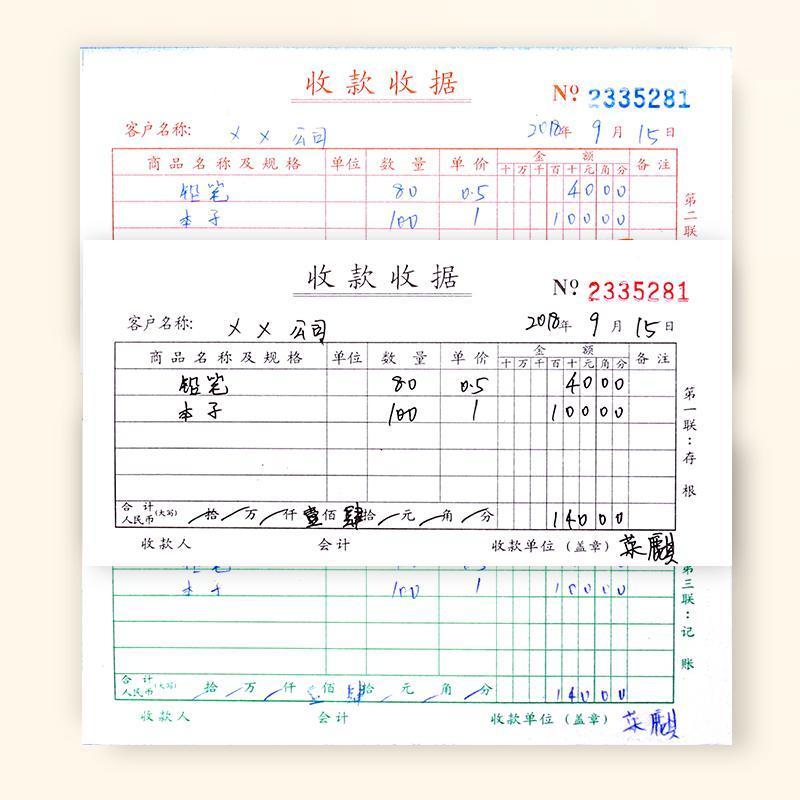 收款收据
№ 2335281
客户名称: ××公司 2018年9月15日
商品名称及规格 单位 数量 单价 金额 十万千百十元角分 备注
铅笔 80 0.5 4000
本子 100 1 10000
第二联
收款收据
№ 2335281
客户名称: ××公司 2018年9月15日
商品名称及规格 单位 数量 单价 金额 十万千百十元角分 备注
铅笔 80 0.5 4000
本子 100 1 10000
第一联:存根
合计人民币(大写) 拾 万 仟壹佰肆拾 元 角 分 14000
收款人 会计 收款单位(盖章)
本子 100 1 10000
第三联:记账
合计人民币(大写) 拾 万 仟壹佰肆拾 元 角 分 14000
收款人 会计 收款单位(盖章)